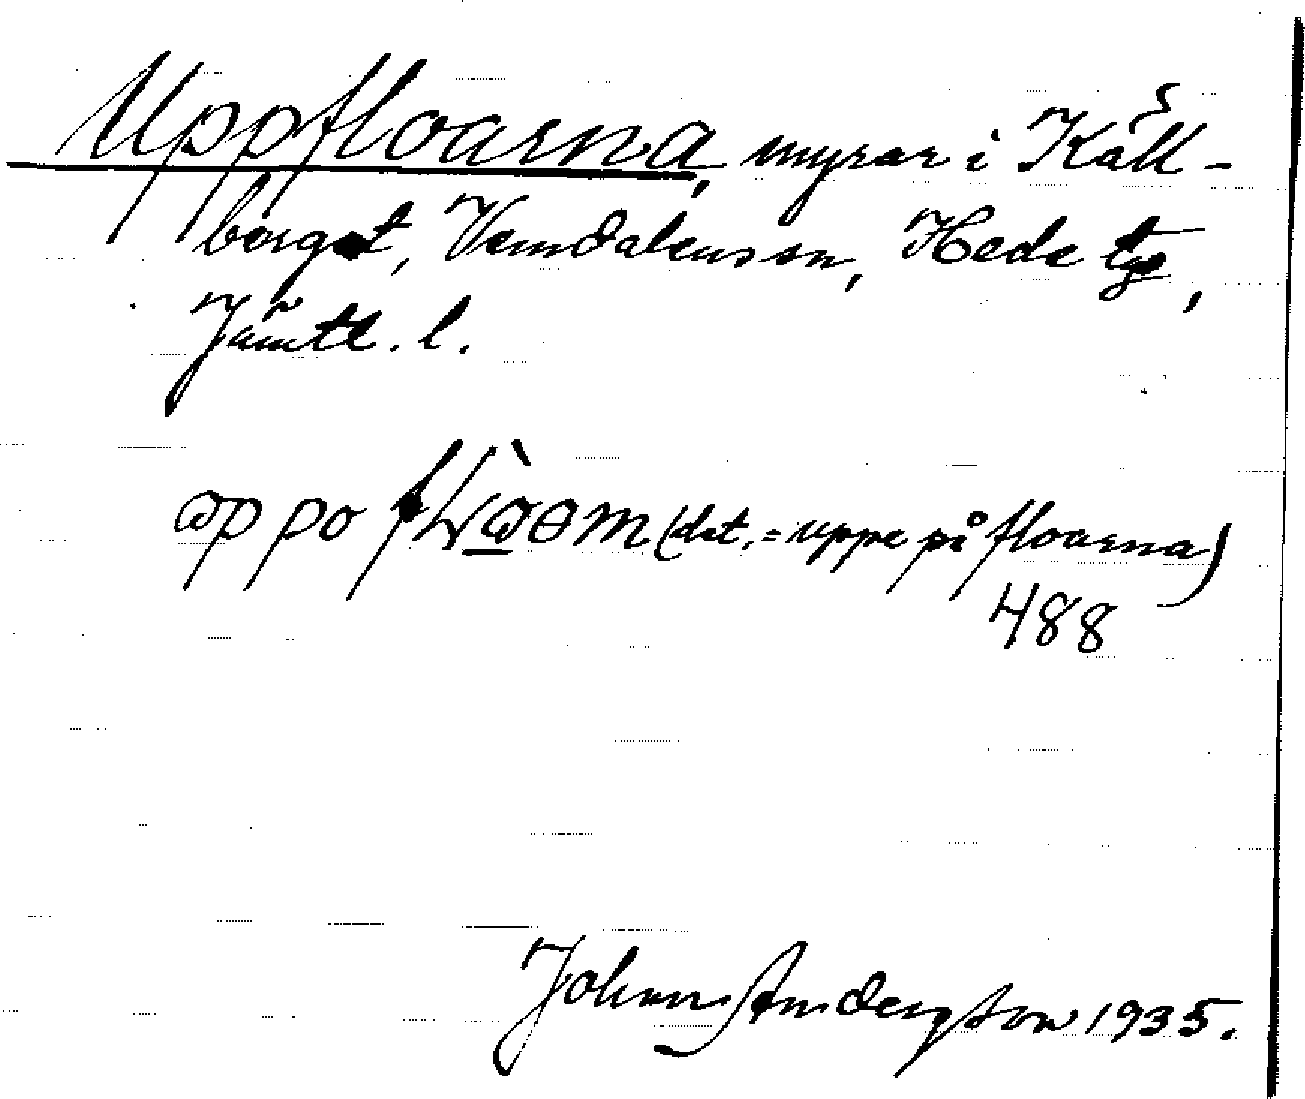 Uppfloarna, myrar i Käll-
berget, Vemdalens sn, Hede tg,
Jämtl. l.
(dat. = uppe på floarna)
488
Johan Andersson 1935.